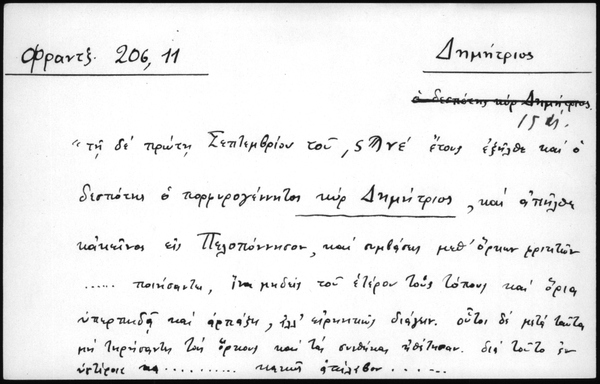 Φραντζ. 206, 11
Δημήτριος
ὁ δεσπότης κύρ Δημήτριος.
"τῇ δέ πρώτῃ Σεπτεμβρίου τοῦ ,ςΛνέ ἔτους ἐξῆλθε καί ὁ
δεσπότης ὁ πορφυρογέννητος κύρ Δημήτριος, καί ἀπῆλθε
κἀκεῖνος εἰς Πελοπόννησον, καί συμβάσεις μεθ' ὅρκων φρικτῶν
...... ποιήσαντες, ἵνα μηδείς τοῦ ἑτέρου τούς τόπους καί ὅρια
ὑπερπηδᾷ καί ἁρπάξῃ, ἀλλ' εἰρηνικῶς διάγων. οὗτοι δέ μετά ταῦτα
μή τηρήσαντες τούς ὅρκους καί τάς συνθήκας ἠθέτησαν. διά τοῦτο ἐν
ὑστέροις κα.......... κακῶς ἀπέλαβον.....